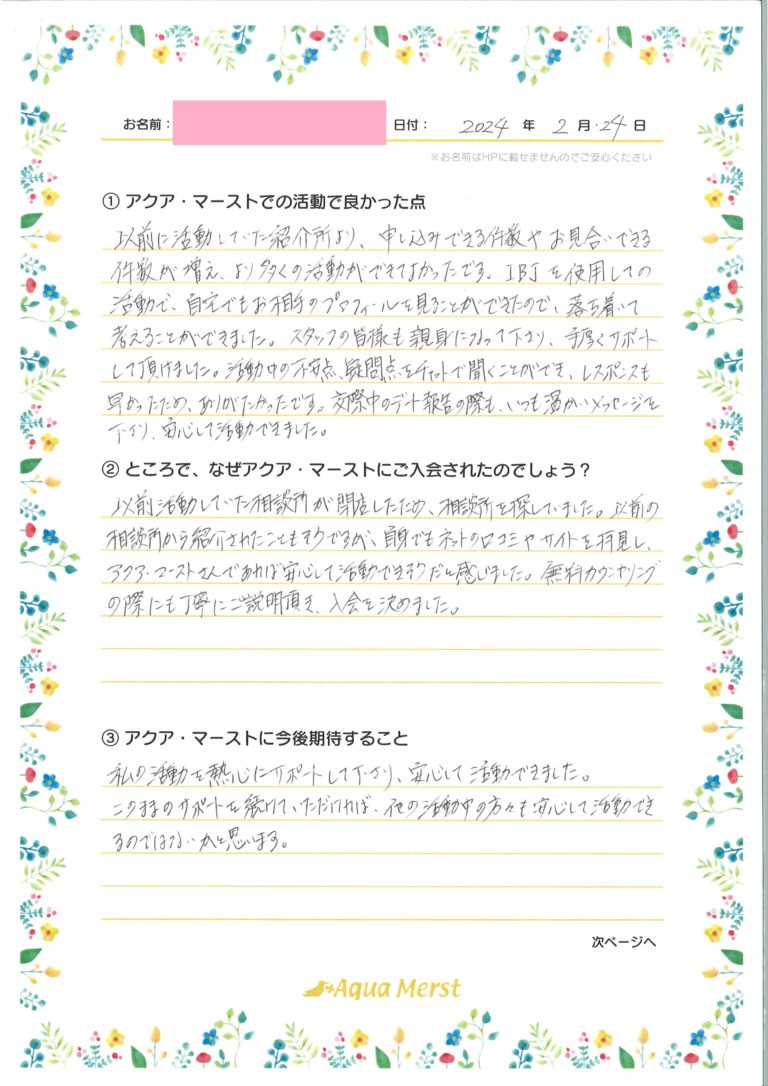 お名前：
日付： 2024 年 2 月 24 日
※お名前はHPに載せませんのでご安心ください
① アクア・マーストでの活動で良かった点
以前に活動していた紹介所より、申し込みできる件数やお見合いできる
件数が増え、より多くの活動ができてよかったです。IBJを使用しての
活動で、自宅でもお相手のプロフィールを見ることができたので、落ち着いて
考えることができました。スタッフの皆様も親身になって下さり、手厚くサポート
して頂けました。活動中の不安点、疑問点をチャットで聞くことができ、レスポンスも
早かったため、ありがたかったです。交際中のデート報告の際も、いつも温かいメッセージを
下さり、安心して活動できました。
② ところで、なぜアクア・マーストにご入会されたのでしょう？
以前活動していた相談所が閉店したため、相談所を探していました。以前の
相談所から紹介されたこともそうですが、自身でもネットの口コミやサイトを拝見し、
アクア・マーストさんであれば安心して活動できそうだと感じました。無料カウンセリング
の際にも丁寧にご説明頂き、入会を決めました。
③ アクア・マーストに今後期待すること
私の活動を熱心にサポートして下さり、安心して活動できました。
このままのサポートを続けていただければ、他の活動中の方々も安心して活動でき
るのではないかと思います。
次ページへ
Aqua Merst